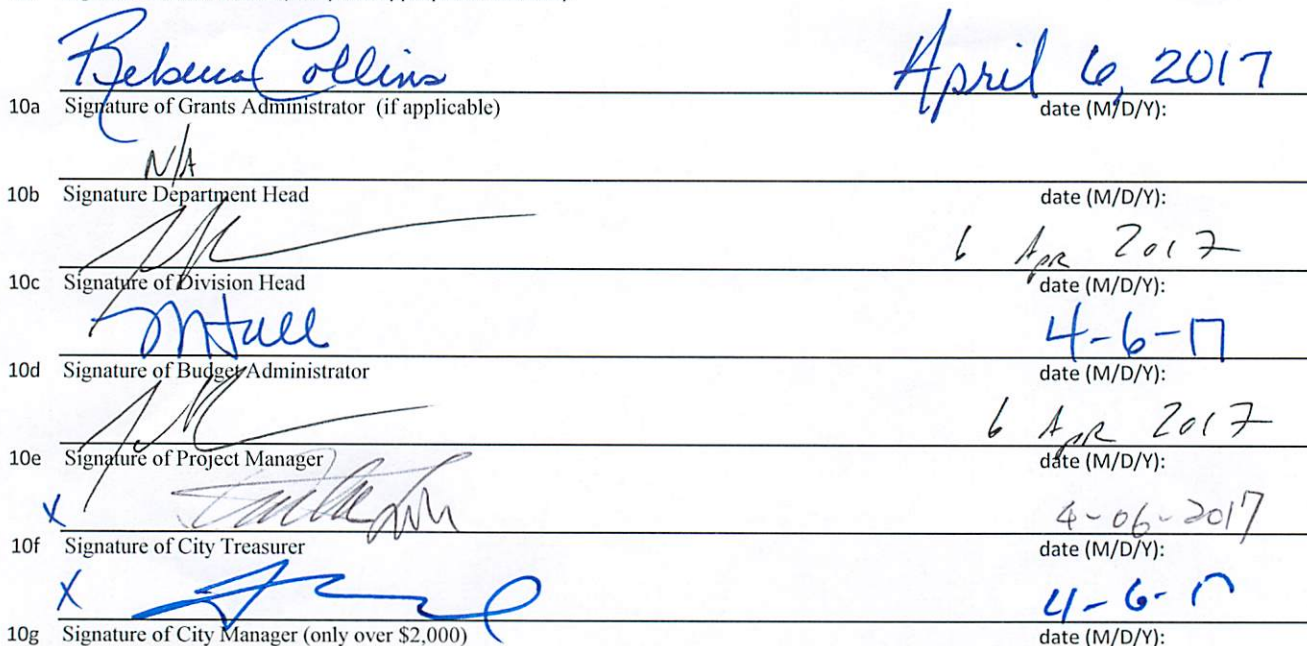 Rebecca Collins April 6, 2017
10a Signature of Grants Administrator (if applicable) date (M/D/Y):
N/A
10b Signature Department Head date (M/D/Y):
6 Apr 2017
10c Signature of Division Head date (M/D/Y):
4-6-17
10d Signature of Budget Administrator date (M/D/Y):
6 Apr 2017
10e Signature of Project Manager date (M/D/Y):
X 4-06-2017
10f Signature of City Treasurer date (M/D/Y):
X 4-6-17
10g Signature of City Manager (only over $2,000) date (M/D/Y):